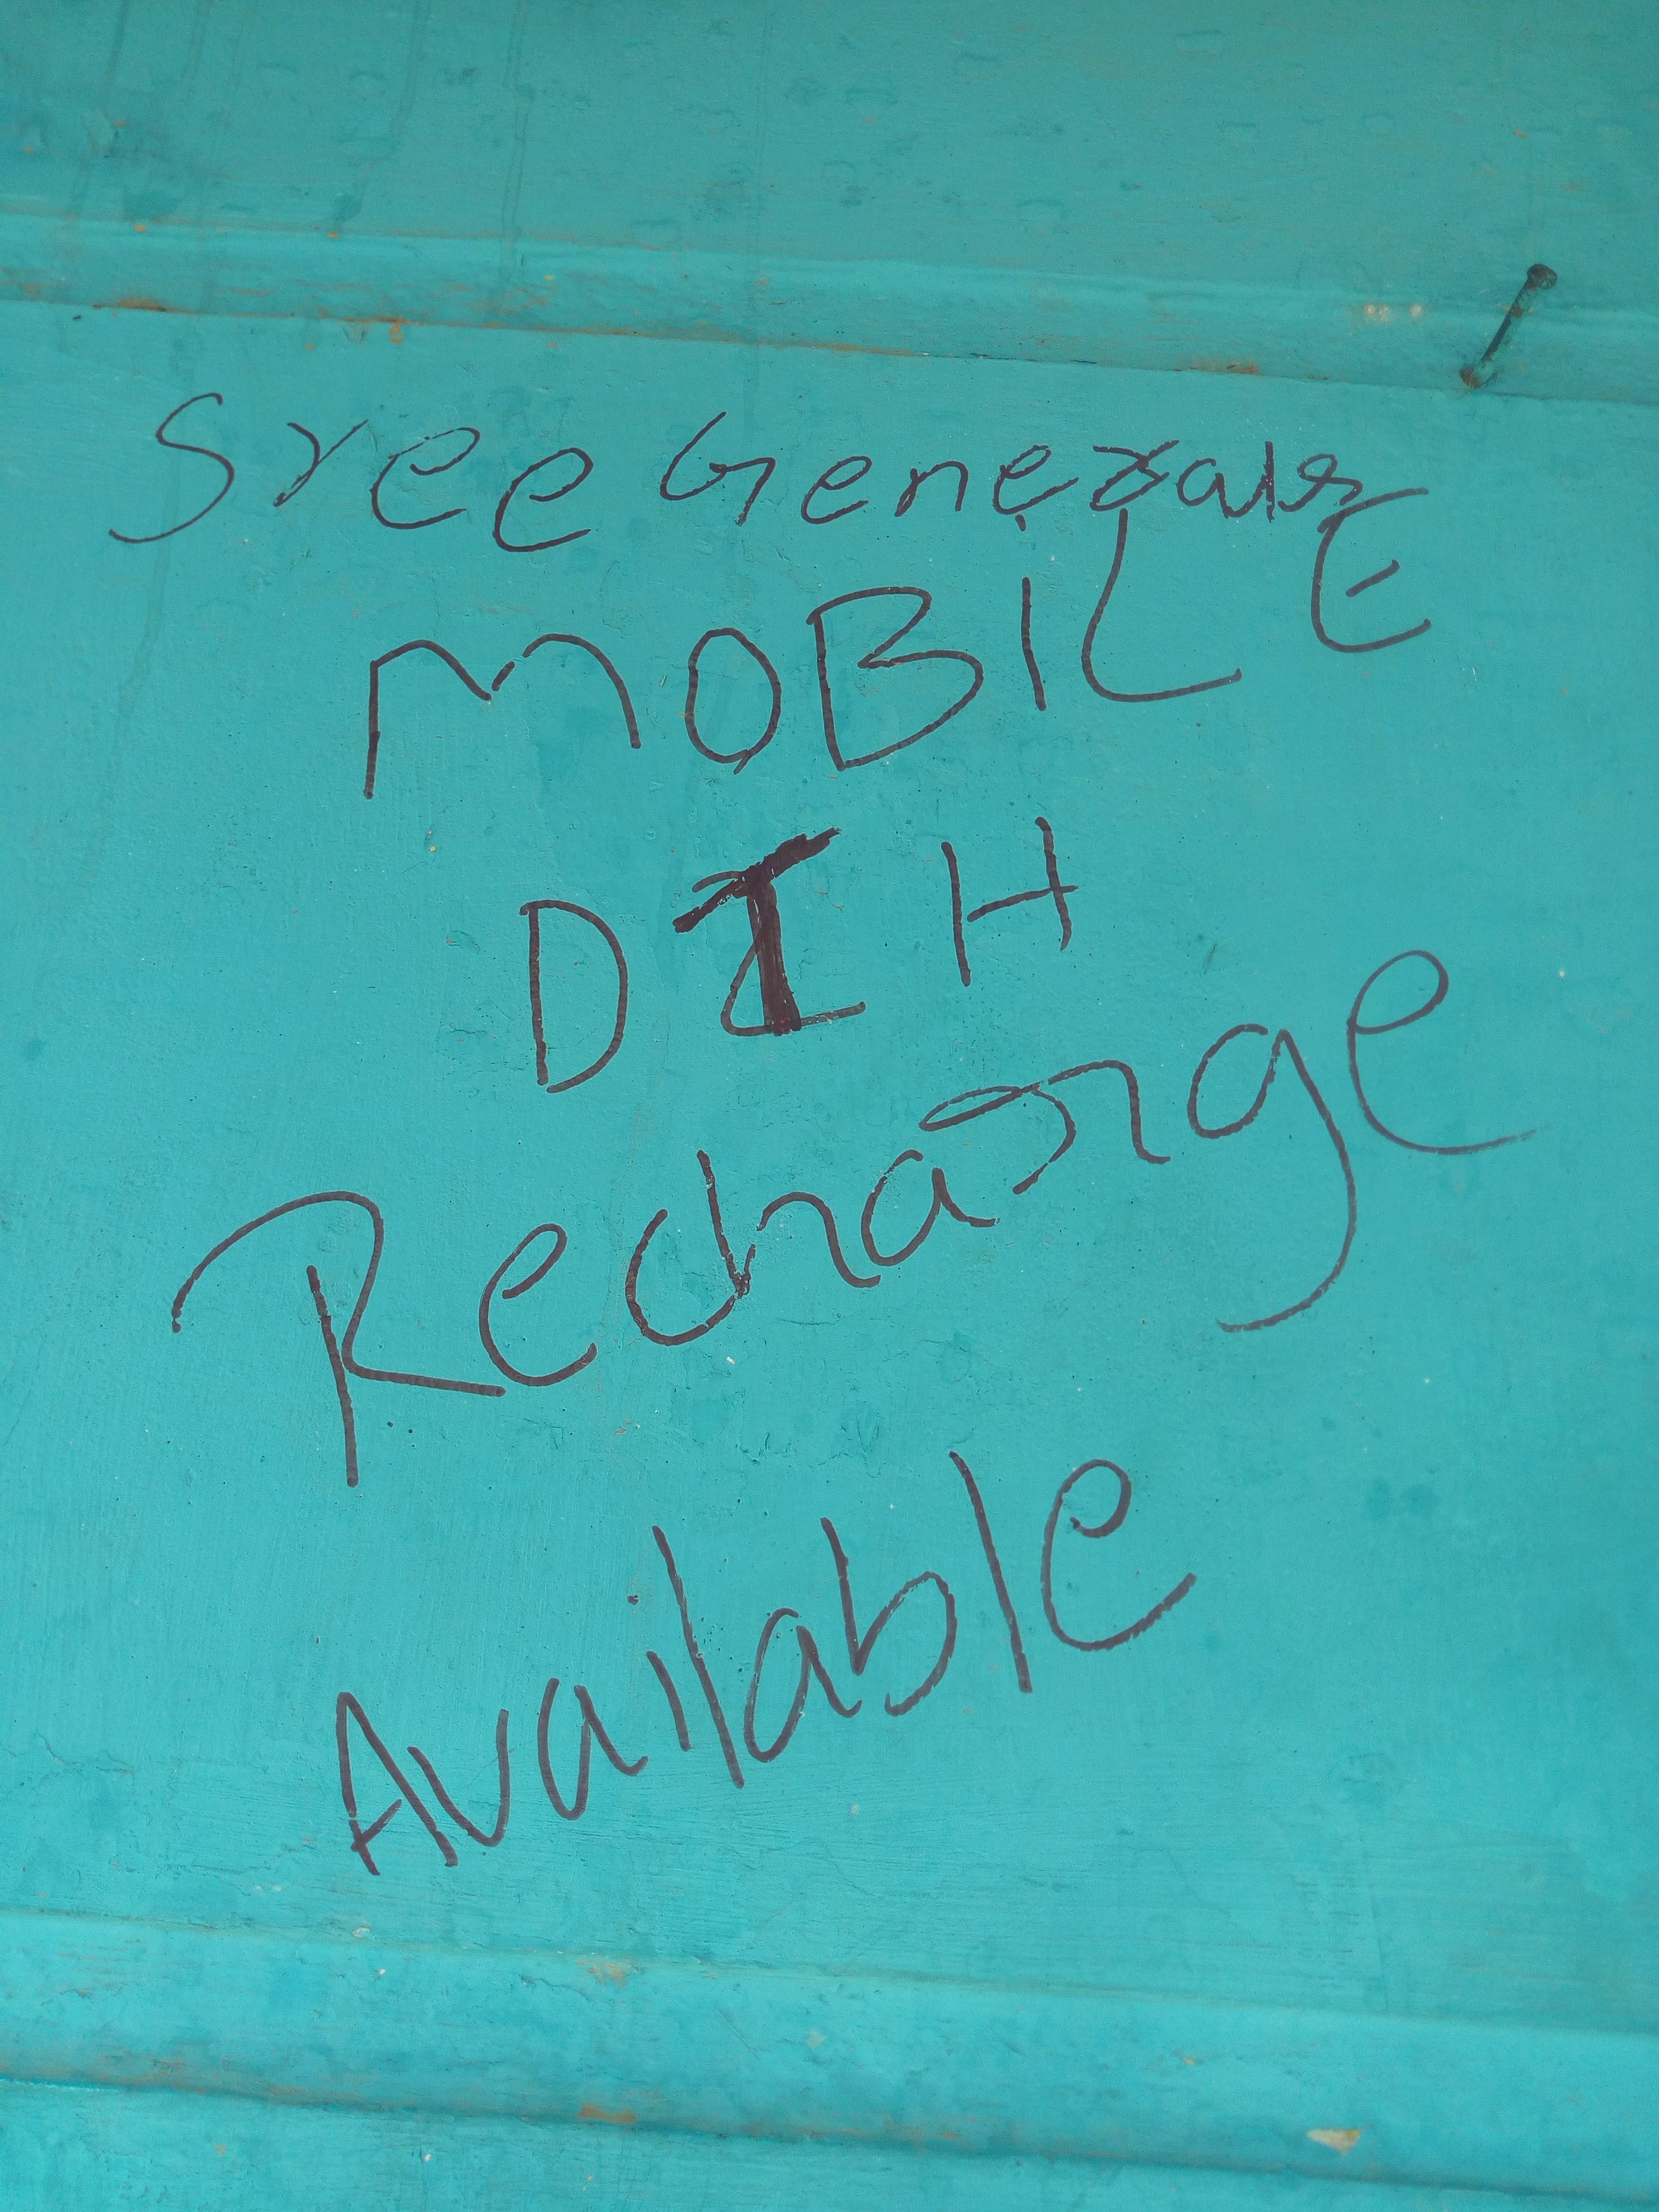 Sree Generals
MOBILE
DTH
Recharge
Available